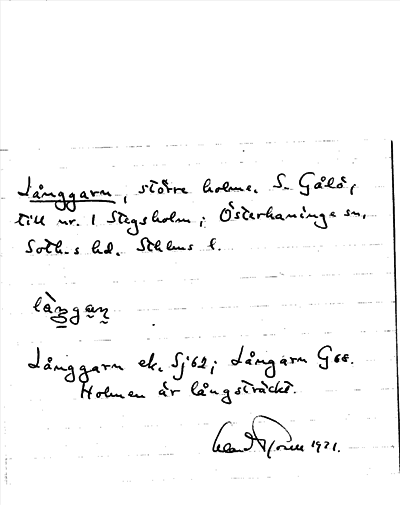 Långgarn, större holme. S. Gålö,
till nr. 1 Stegsholm; Österhaninge sn,
Soth-s hd. Sthlms l.
làŋgaṇ
Långgarn ek. Sj 62; Långarn G 68.
Holmen är långsträckt.
1921.